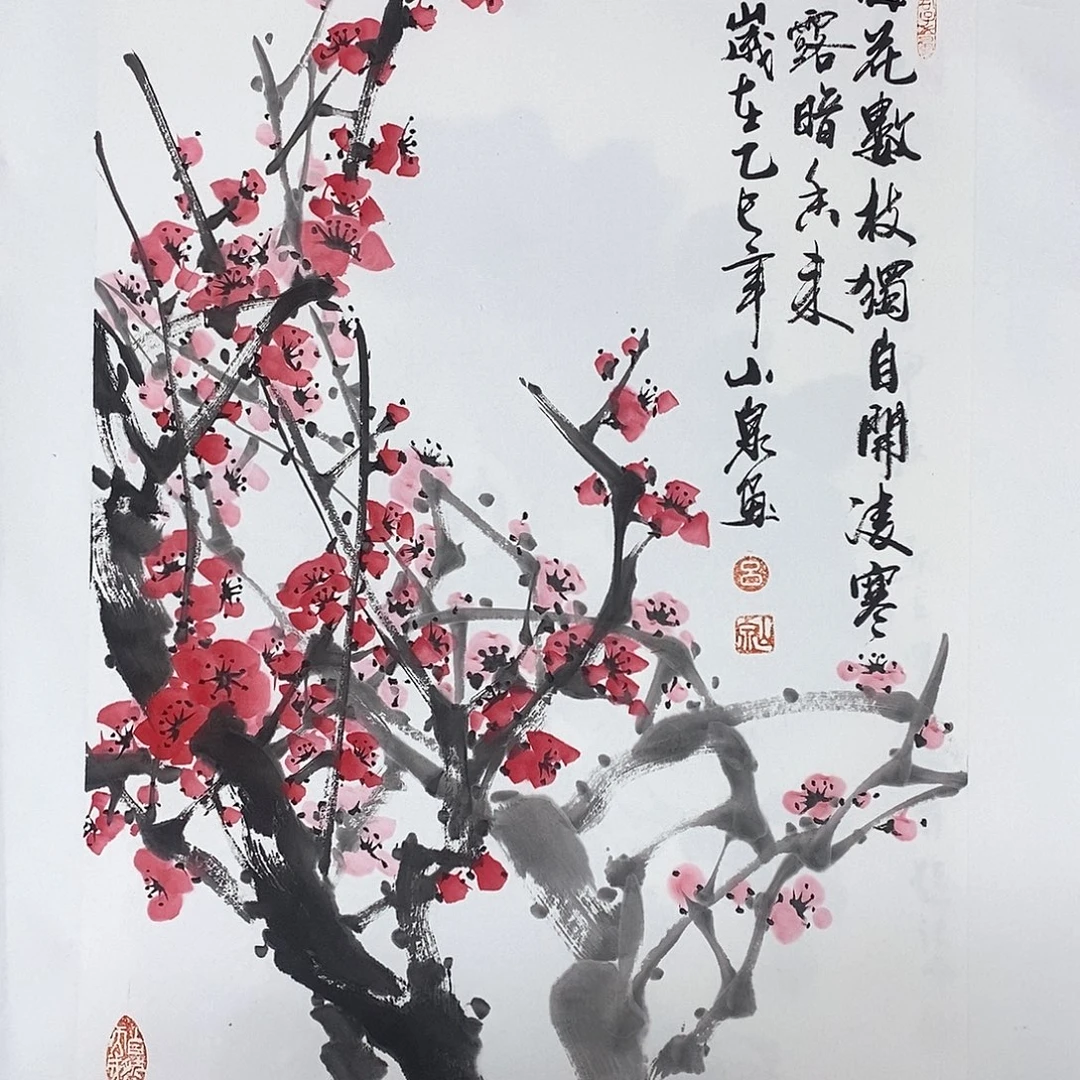 梅花數枝獨自開凌寒
露暗香來
歲在乙巳年小泉畫
呂
泉